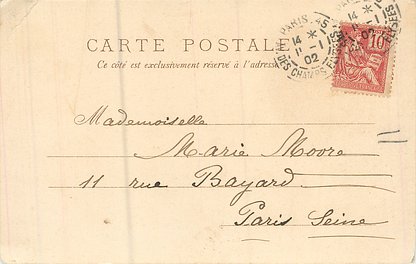 CARTE POSTALE
Ce côté est exclusivement réservé à l'adresse
PARIS. 45
14 * 
11 -1
02
AV. DES CHAMPS ELYSEES
10
Mademoiselle
Marie Moore
11 rue Bayard.
Paris Seine